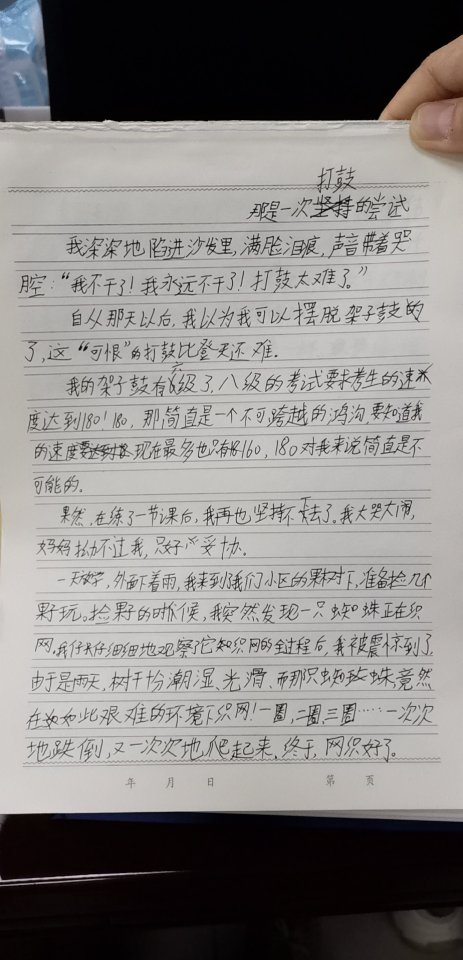 打鼓
那是一次坚持的尝试
我深深地陷进沙发里,满脸泪痕,声音带着哭
腔:“我不干了!我永远不干了!打鼓太难了。”
自从那天以后,我以为我可以摆脱架子鼓的
了,这“可恨”的打鼓比登天还难.
我的架子鼓有六级了,八级的考试要求考生的速
度达到180!180,那简直是一个不可跨越的鸿沟,要知道我
的速度要达到现在最多也只有160,180对我来说简直是不
可能的.
果然,在练了一节课后,我再也坚持不下去了。我大哭大闹,
妈妈拗不过我,只好妥协.
一天放学,外面下着雨,我来到了我们小区的果树下,准备捡几个
野果玩。捡野果的时候,我突然发现一只蜘蛛正在织
网。我仔仔细细地观察了它织网的全过程后,我被震惊到了.
由于是雨天,树干十分潮湿、光滑、而那只蜘蛛竟然
在如此艰难的环境下织网!一圈,二圈,三圈……一次次
地跌倒,又一次次地爬起来,终于,网织好了。
年 月 日 第 页